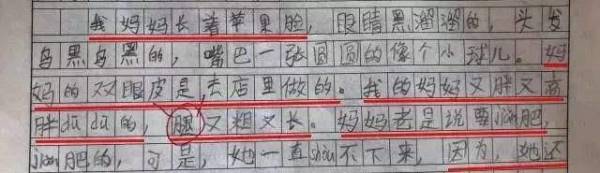 我妈妈长着苹果脸，眼睛黑溜溜的，头发
乌黑乌黑的，嘴巴一张圆圆的像个小球儿。妈
妈的双眼皮是去店里做的。我的妈妈又胖又高
胖dūdū的，腿又粗又长。妈妈老是说要jiǎn肥，
jiǎn肥的，可是，她一直shòu不下来，因为，她还